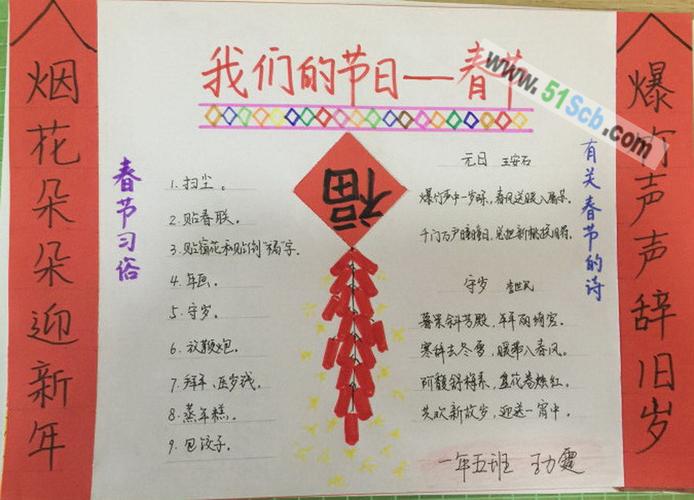 我们的节日—春节
www.51Scb.com
烟花朵朵迎新年
春节习俗
1. 扫尘。
2. 贴春联。
3. 贴窗花和贴倒“福”字。
4. 年画。
5. 守岁。
6. 放鞭炮。
7. 拜年、压岁钱。
8. 蒸年糕。
9. 包饺子。
福
有关春节的诗
元日 王安石
爆竹声中一岁除，春风送暖入屠苏。
千门万户曈曈日，总把新桃换旧符。
守岁 李世民
暮景斜芳殿，年年丽绮宫。
寒辞去冬雪，暖带入春风。
阶馥舒梅素，盘花卷烛红。
共欢新故岁，迎送一宵中。
一年五班
爆竹声声辞旧岁